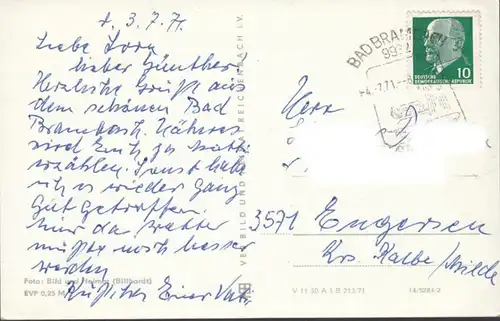 d. 3.7.71
Liebe Dorn
lieber Günther!
Herzliche Grüße aus
dem schönen Bad
Brambach. Näheres
wird Euch
erzählen. Sonst habe
ich es wieder ganz
gut getroffen.
Nur das Wetter
müßte noch besser
werden
Euer
Foto: Bild und Heimat (Billhardt)
EVP 0,25 M
VEB BILD UND HEIMAT REICHENBACH I. V.
BAD BRAM
993
-4.-7.71-
DEUTSCHE
DEMOKRATISCHE REPUBLIK
10
Herrn
3571 Engersen
Krs. Kalbe/Milde
V 11 50 A 1 B 213/71